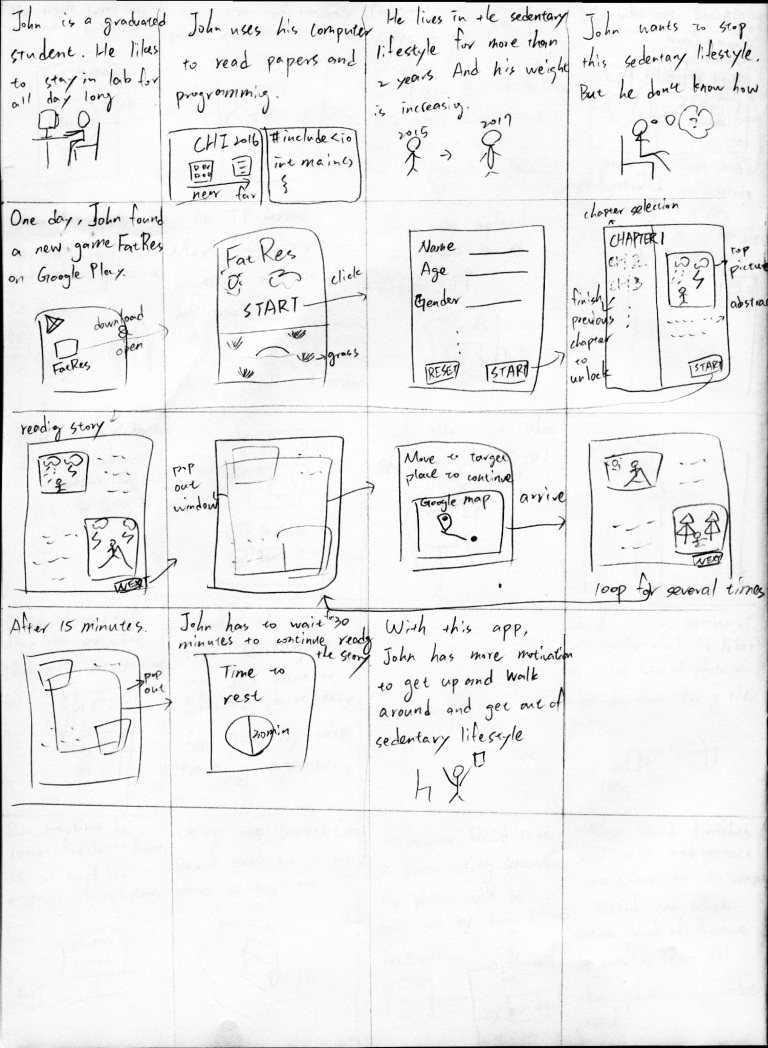 John is a graduated
student. He likes
to stay in lab for
all day long
John uses his computer
to read papers and
programming.
CHI 2016
near far
#include<io
int main()
{
He lives in the sedentary
lifestyle for more than
2 years. And his weight
is increasing.
2015
2017
John wants to stop
this sedentary lifestyle.
But he don't know how
?
One day, John found
a new game FatRes
on Google Play.
download
&
open
FatRes
FatRes
START
click
grass
Name
Age
Gender
RESET
START
chapter selection
CHAPTER 1
CH 2
CH 3
top
picture
abstract
finish
previous
chapter
to
unlock
START
reading story
NEXT
pop
out
window
Move to target
place to continue
Google map
arrive
NEXT
loop for several times
After 15 minutes.
pop
out
John has to wait for 30
minutes to continue ready
the story
Time to
rest
30min
With this app,
John has more motivation
to get up and walk
around and get out of
sedentary lifestyle